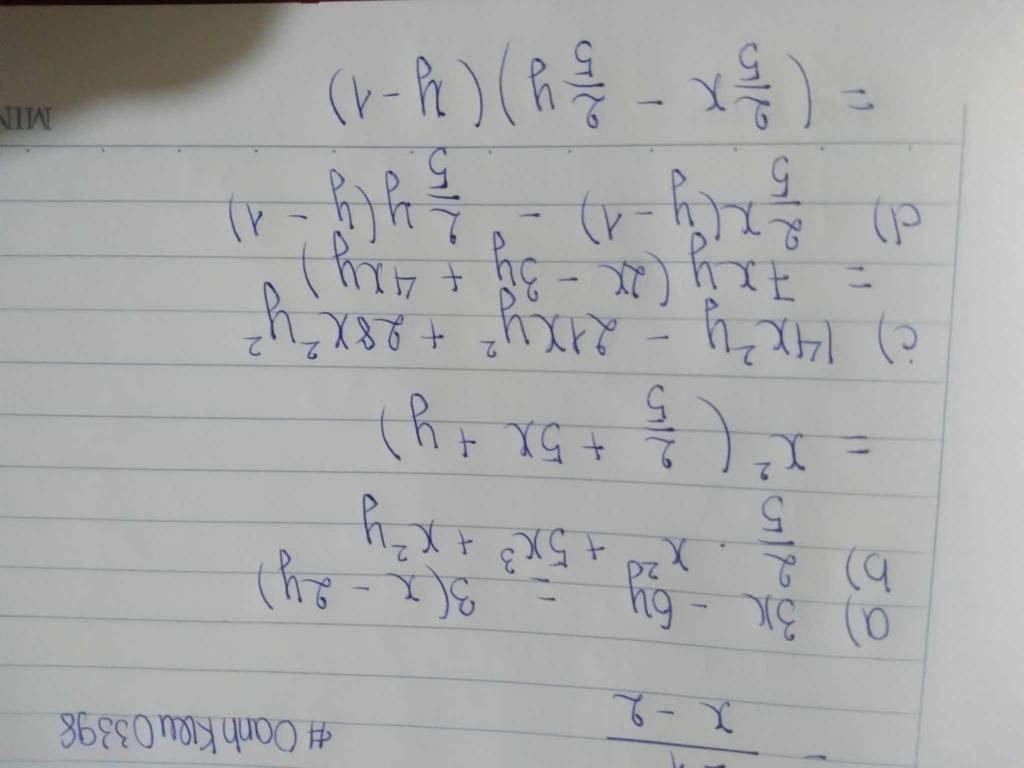 x - 2
#OanhKieu03398
a) 3x - 6y = 3(x - 2y)
b) 2/5 . x² + 5x³ + x²y
= x² (2/5 + 5x + y)
c) 14x²y - 21xy² + 28x²y²
= 7xy (2x - 3y + 4xy)
d) 2/5 x(y - 1) - 2/5 y(y - 1)
= (2/5 x - 2/5 y)(y - 1)